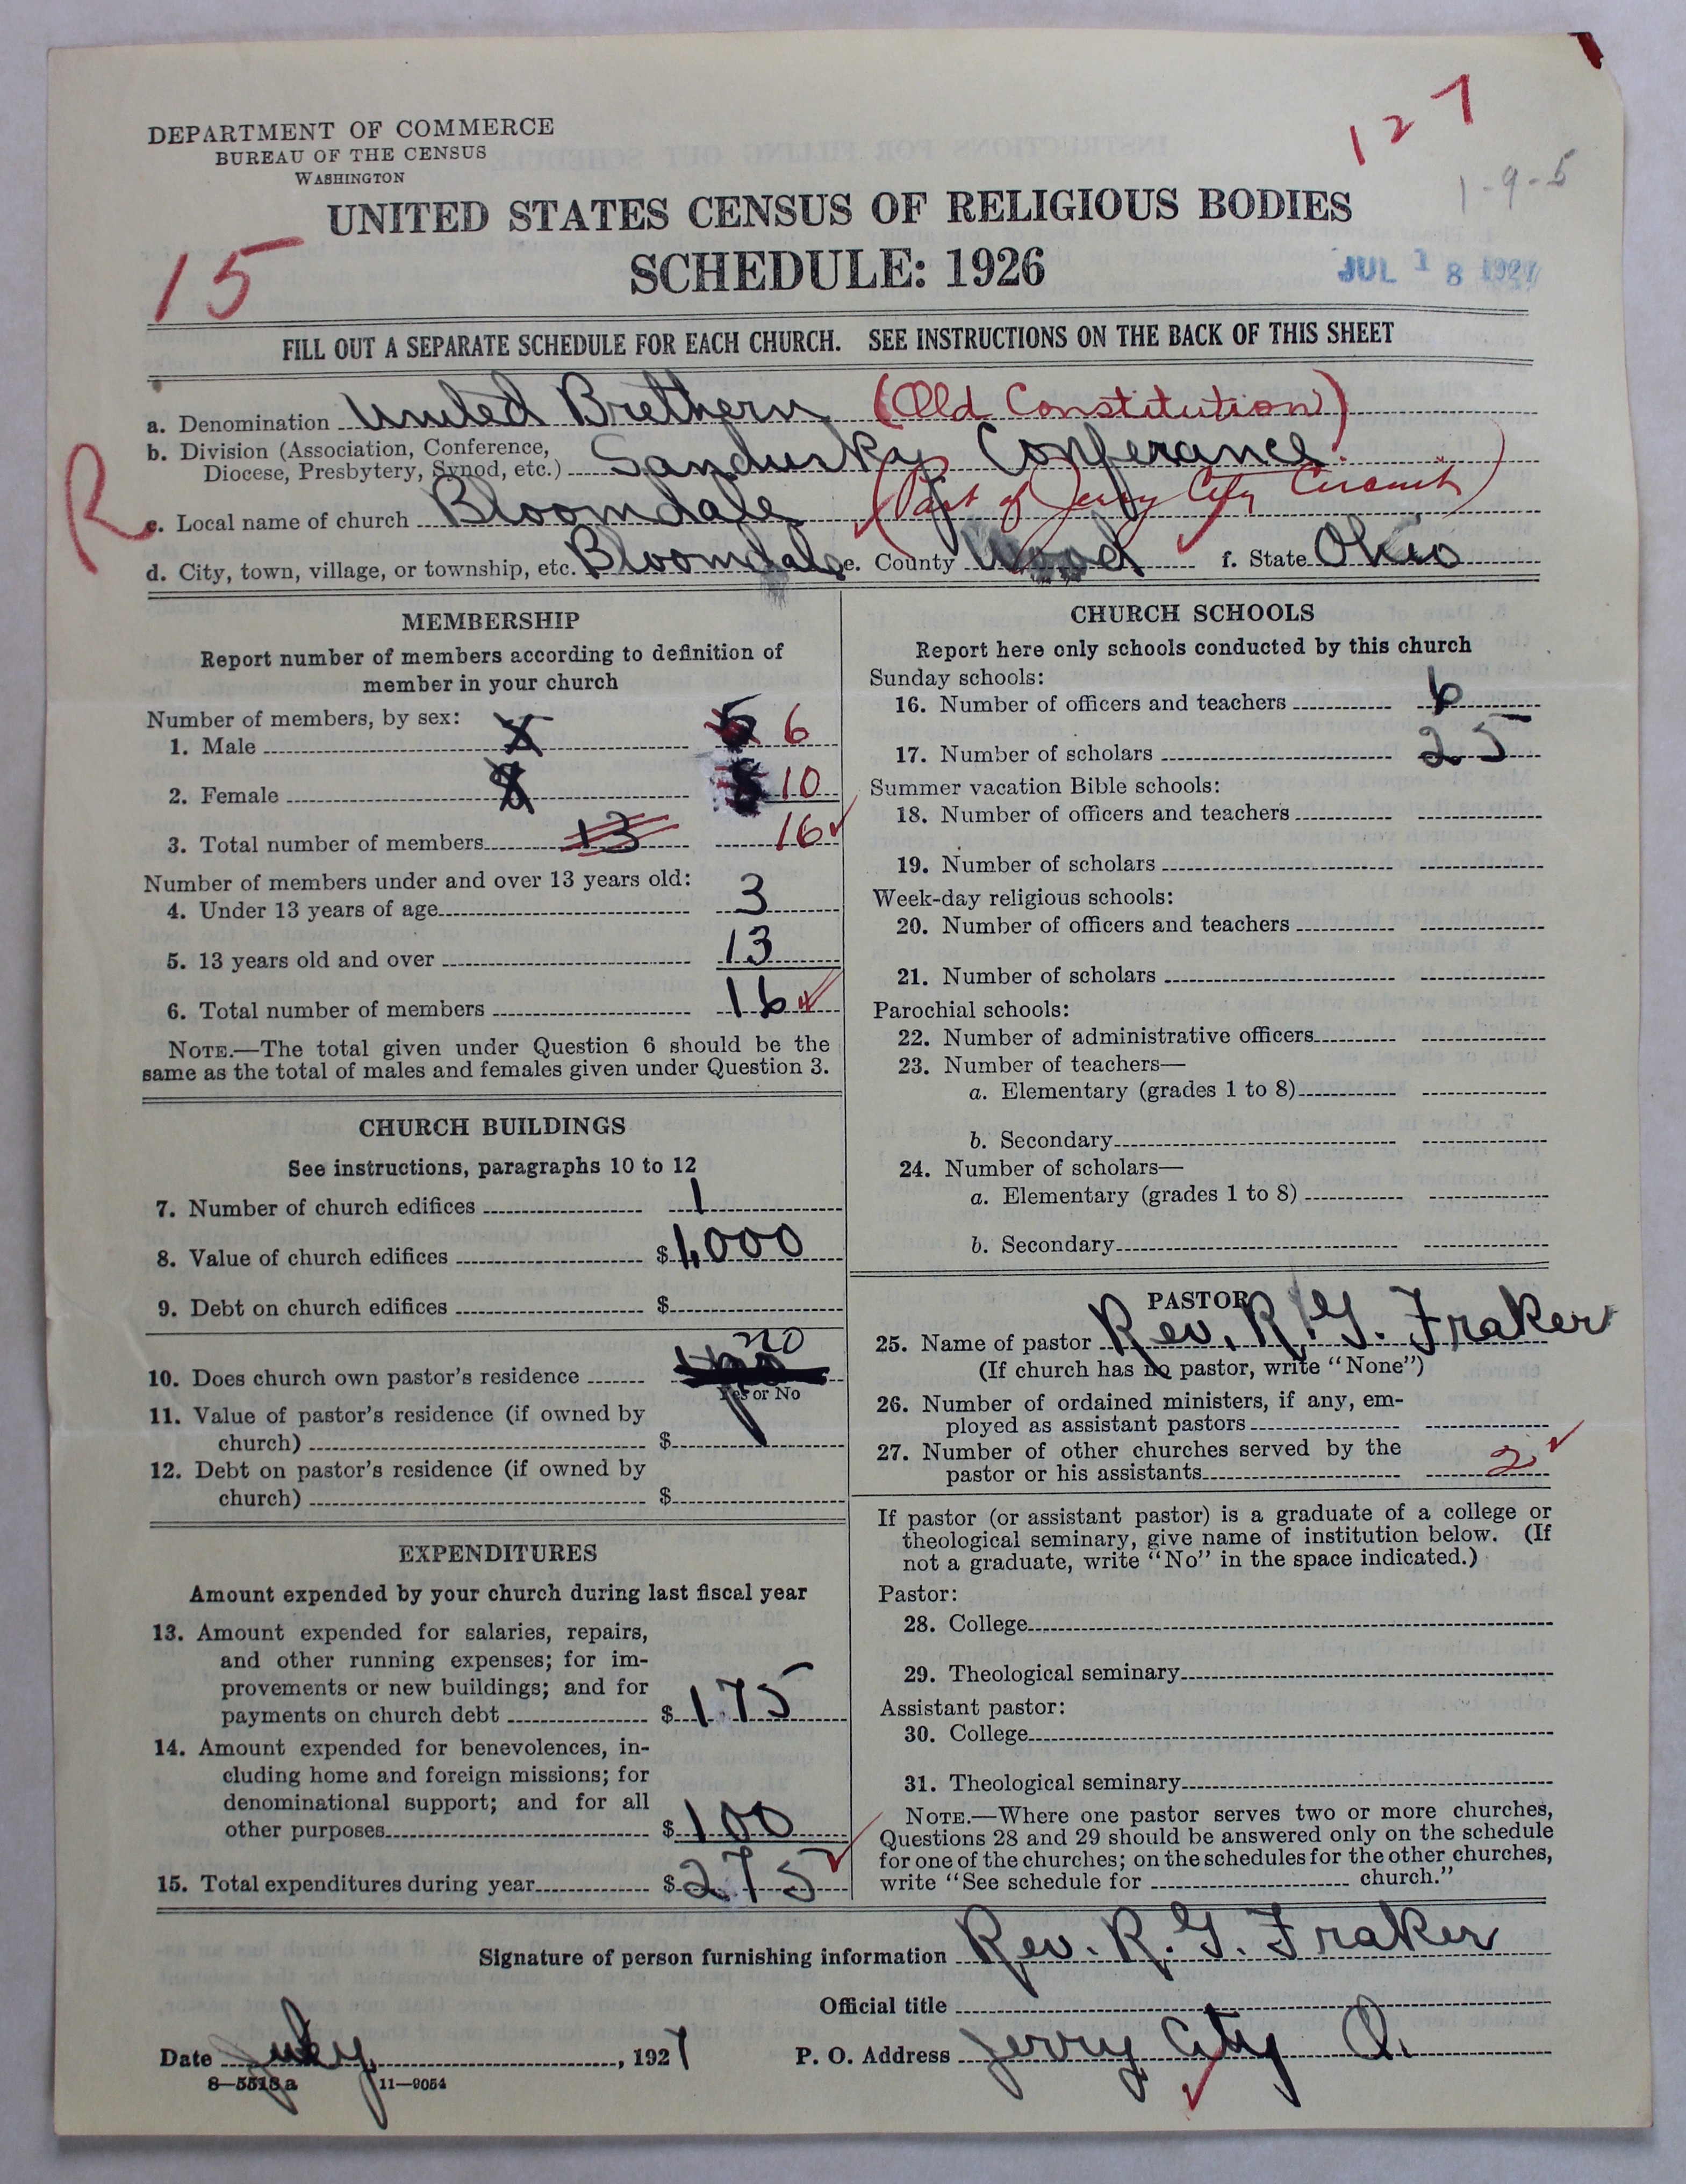 127
1-9-5
DEPARTMENT OF COMMERCE
BUREAU OF THE CENSUS
WASHINGTON
UNITED STATES CENSUS OF RELIGIOUS BODIES
15
SCHEDULE: 1926
JUL 18 1927
FILL OUT A SEPARATE SCHEDULE FOR EACH CHURCH. SEE INSTRUCTIONS ON THE BACK OF THIS SHEET
a. Denomination United Brethern (Old Constitution)
b. Division (Association, Conference,
Diocese, Presbytery, Synod, etc.) Sandusky Conferance.
R
c. Local name of church Bloomdale (Part of Jerry City Circuit)
d. City, town, village, or township, etc. Bloomdale e. County Wood f. State Ohio
MEMBERSHIP
Report number of members according to definition of
member in your church
Number of members, by sex:
1. Male 5 6
2. Female 8 10
3. Total number of members 13 16
Number of members under and over 13 years old:
4. Under 13 years of age 3
5. 13 years old and over 13
6. Total number of members 16
NOTE.—The total given under Question 6 should be the
same as the total of males and females given under Question 3.
CHURCH BUILDINGS
See instructions, paragraphs 10 to 12
7. Number of church edifices 1
8. Value of church edifices $ 4000
9. Debt on church edifices $
10. Does church own pastor's residence no
Yes or No
11. Value of pastor's residence (if owned by
church) $
12. Debt on pastor's residence (if owned by
church) $
EXPENDITURES
Amount expended by your church during last fiscal year
13. Amount expended for salaries, repairs,
and other running expenses; for im-
provements or new buildings; and for
payments on church debt $ 175
14. Amount expended for benevolences, in-
cluding home and foreign missions; for
denominational support; and for all
other purposes $ 100
15. Total expenditures during year $ 275
CHURCH SCHOOLS
Report here only schools conducted by this church
Sunday schools:
16. Number of officers and teachers 6
17. Number of scholars 25
Summer vacation Bible schools:
18. Number of officers and teachers
19. Number of scholars
Week-day religious schools:
20. Number of officers and teachers
21. Number of scholars
Parochial schools:
22. Number of administrative officers
23. Number of teachers—
a. Elementary (grades 1 to 8)
b. Secondary
24. Number of scholars—
a. Elementary (grades 1 to 8)
b. Secondary
PASTOR
25. Name of pastor Rev. R. G. Fraker
(If church has no pastor, write "None")
26. Number of ordained ministers, if any, em-
ployed as assistant pastors
27. Number of other churches served by the
pastor or his assistants 2
If pastor (or assistant pastor) is a graduate of a college or
theological seminary, give name of institution below. (If
not a graduate, write "No" in the space indicated.)
Pastor:
28. College
29. Theological seminary
Assistant pastor:
30. College
31. Theological seminary
NOTE.—Where one pastor serves two or more churches,
Questions 28 and 29 should be answered only on the schedule
for one of the churches; on the schedules for the other churches,
write "See schedule for church."
Signature of person furnishing information Rev. R. G. Fraker
Official title
Date July, 1927 P. O. Address Jerry City O.
8—5513a 11—9054